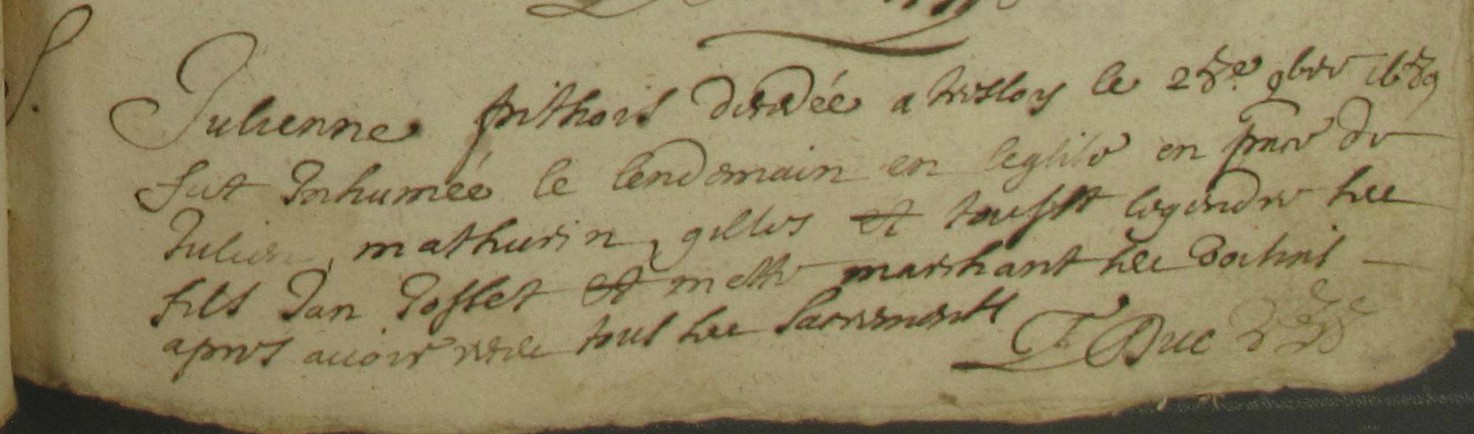 S.
Julienne frithois décédée a tresloy le 28.e 9bre 1689
fut Inhumée le lendomain en leglise en pnce de
Julien, mathurin, gilles et toussst legendre ses
fils Jan Josset et mathe marchant ses
apres avoir receu tous ses sacrements
F Duc